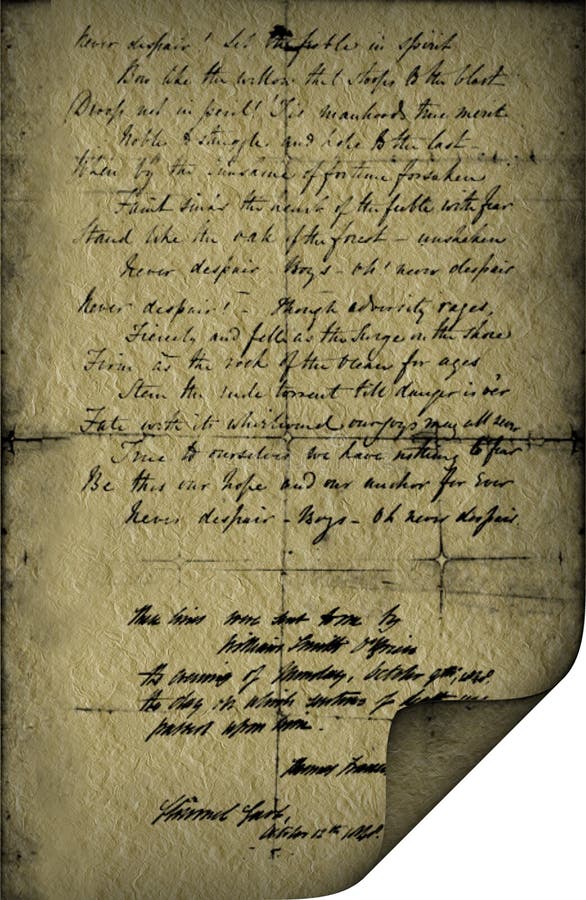 Never despair! Let the feeble in spirit
Bow like the willow that stoops to the blast
Droop not in peril! 'Tis manhoods true merit
Noble to struggle and hope to the last -
When by the sunshine of fortune forsaken
Faint sinks the heart of the feeble with fear
Stand like the oak of the forest - unshaken
Never despair - Boys - oh! never despair
Never despair! - Though adversity rages,
Fiercely and fell as the surge on the shore
Firm as the rock of the Ocean for ages
Stem the rude torrent till danger is o'er
Fate with its whirlwind our joys may all sever
True to ourselves we have nothing to fear
Be this our hope and our anchor for ever
Never despair - Boys - Oh never despair.
These lines were sent to me by
William Smith O'Brien
the evening of Monday, October 9th, 1848.
the day on which sentence of death was
passed upon him.
Thomas Franc
Clonmel Gaol,
October 12th 1848.